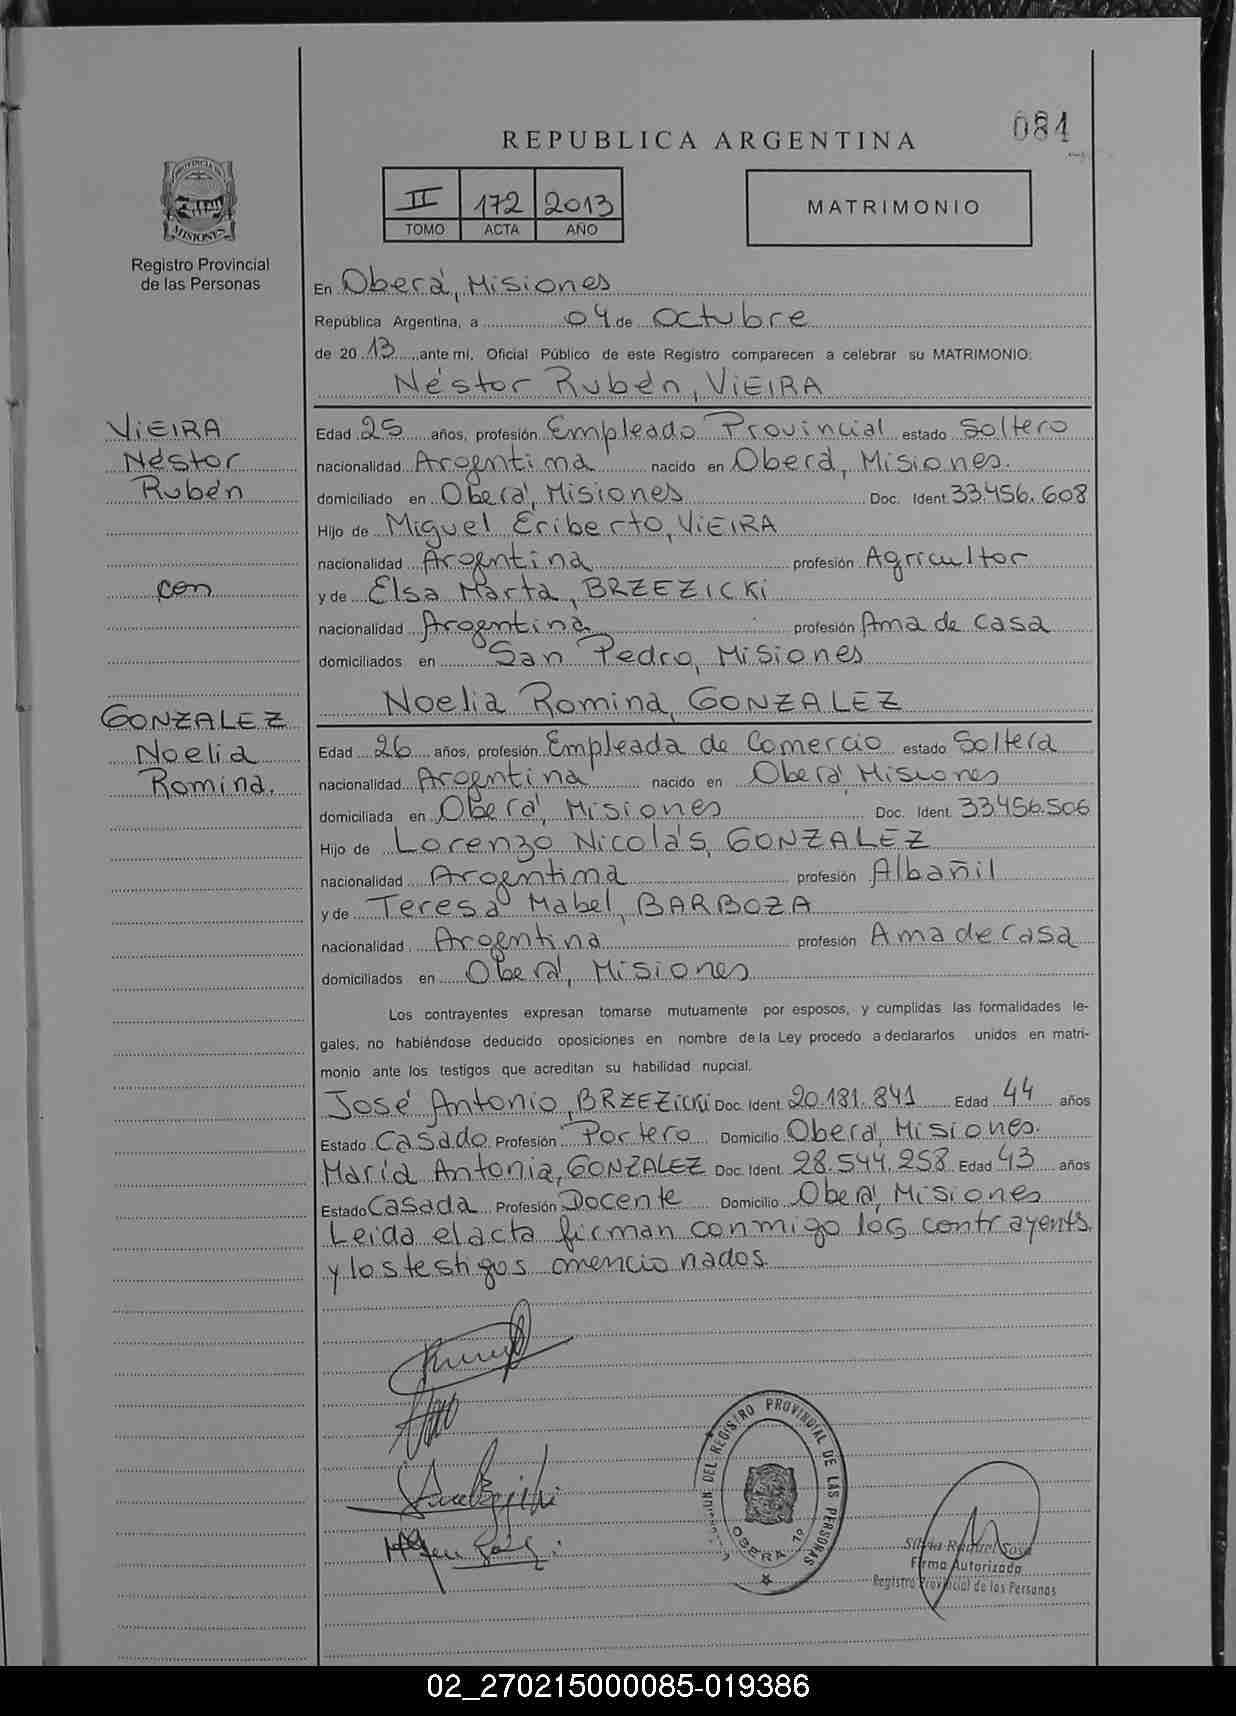 REPUBLICA ARGENTINA
084
PROVINCIA DE
MISIONES
Registro Provincial
de las Personas
II 172 2013
TOMO ACTA AÑO
MATRIMONIO
En Oberá, Misiones
República Argentina, a 04 de Octubre
de 2013, ante mi, Oficial Público de este Registro comparecen a celebrar su MATRIMONIO:
Néstor Rubén, VIEIRA
VIEIRA
Néstor
Rubén
con
GONZALEZ
Noelia
Romina.
Edad 25 años, profesión Empleado Provincial estado Soltero
nacionalidad Argentina nacido en Oberá, Misiones.
domiciliado en Oberá, Misiones Doc. Ident. 33.456.608
Hijo de Miguel Eriberto, VIEIRA
nacionalidad Argentina profesión Agricultor
y de Elsa Marta, BRZEZICKI
nacionalidad Argentina profesión Ama de casa
domiciliados en San Pedro, Misiones
Noelia Romina, GONZALEZ
Edad 26 años, profesión Empleada de Comercio estado Soltera
nacionalidad Argentina nacido en Oberá, Misiones
domiciliada en Oberá, Misiones Doc. Ident. 33.456.506
Hijo de Lorenzo Nicolás, GONZALEZ
nacionalidad Argentina profesión Albañil
y de Teresa Mabel, BARBOZA
nacionalidad Argentina profesión Ama de casa
domiciliados en Oberá, Misiones
Los contrayentes expresan tomarse mutuamente por esposos, y cumplidas las formalidades le-
gales, no habiéndose deducido oposiciones en nombre de la Ley procedo a declararlos unidos en matri-
monio ante los testigos que acreditan su habilidad nupcial.
José Antonio, BRZEZICKI Doc. Ident. 20.181.841 Edad 44 años
Estado Casado Profesión Portero Domicilio Oberá, Misiones.
María Antonia, GONZALEZ Doc. Ident. 28.544.258 Edad 43 años
Estado Casada Profesión Docente Domicilio Oberá, Misiones
Leida el acta firman conmigo los contrayents
y los testigos mencionados.
DEL REGISTRO PROVINCIAL DE LAS PERSONAS
OBERA 1º
Silvia Raquel Sosa
Firma Autorizada
Registro Provincial de las Personas
02_270215000085-019386